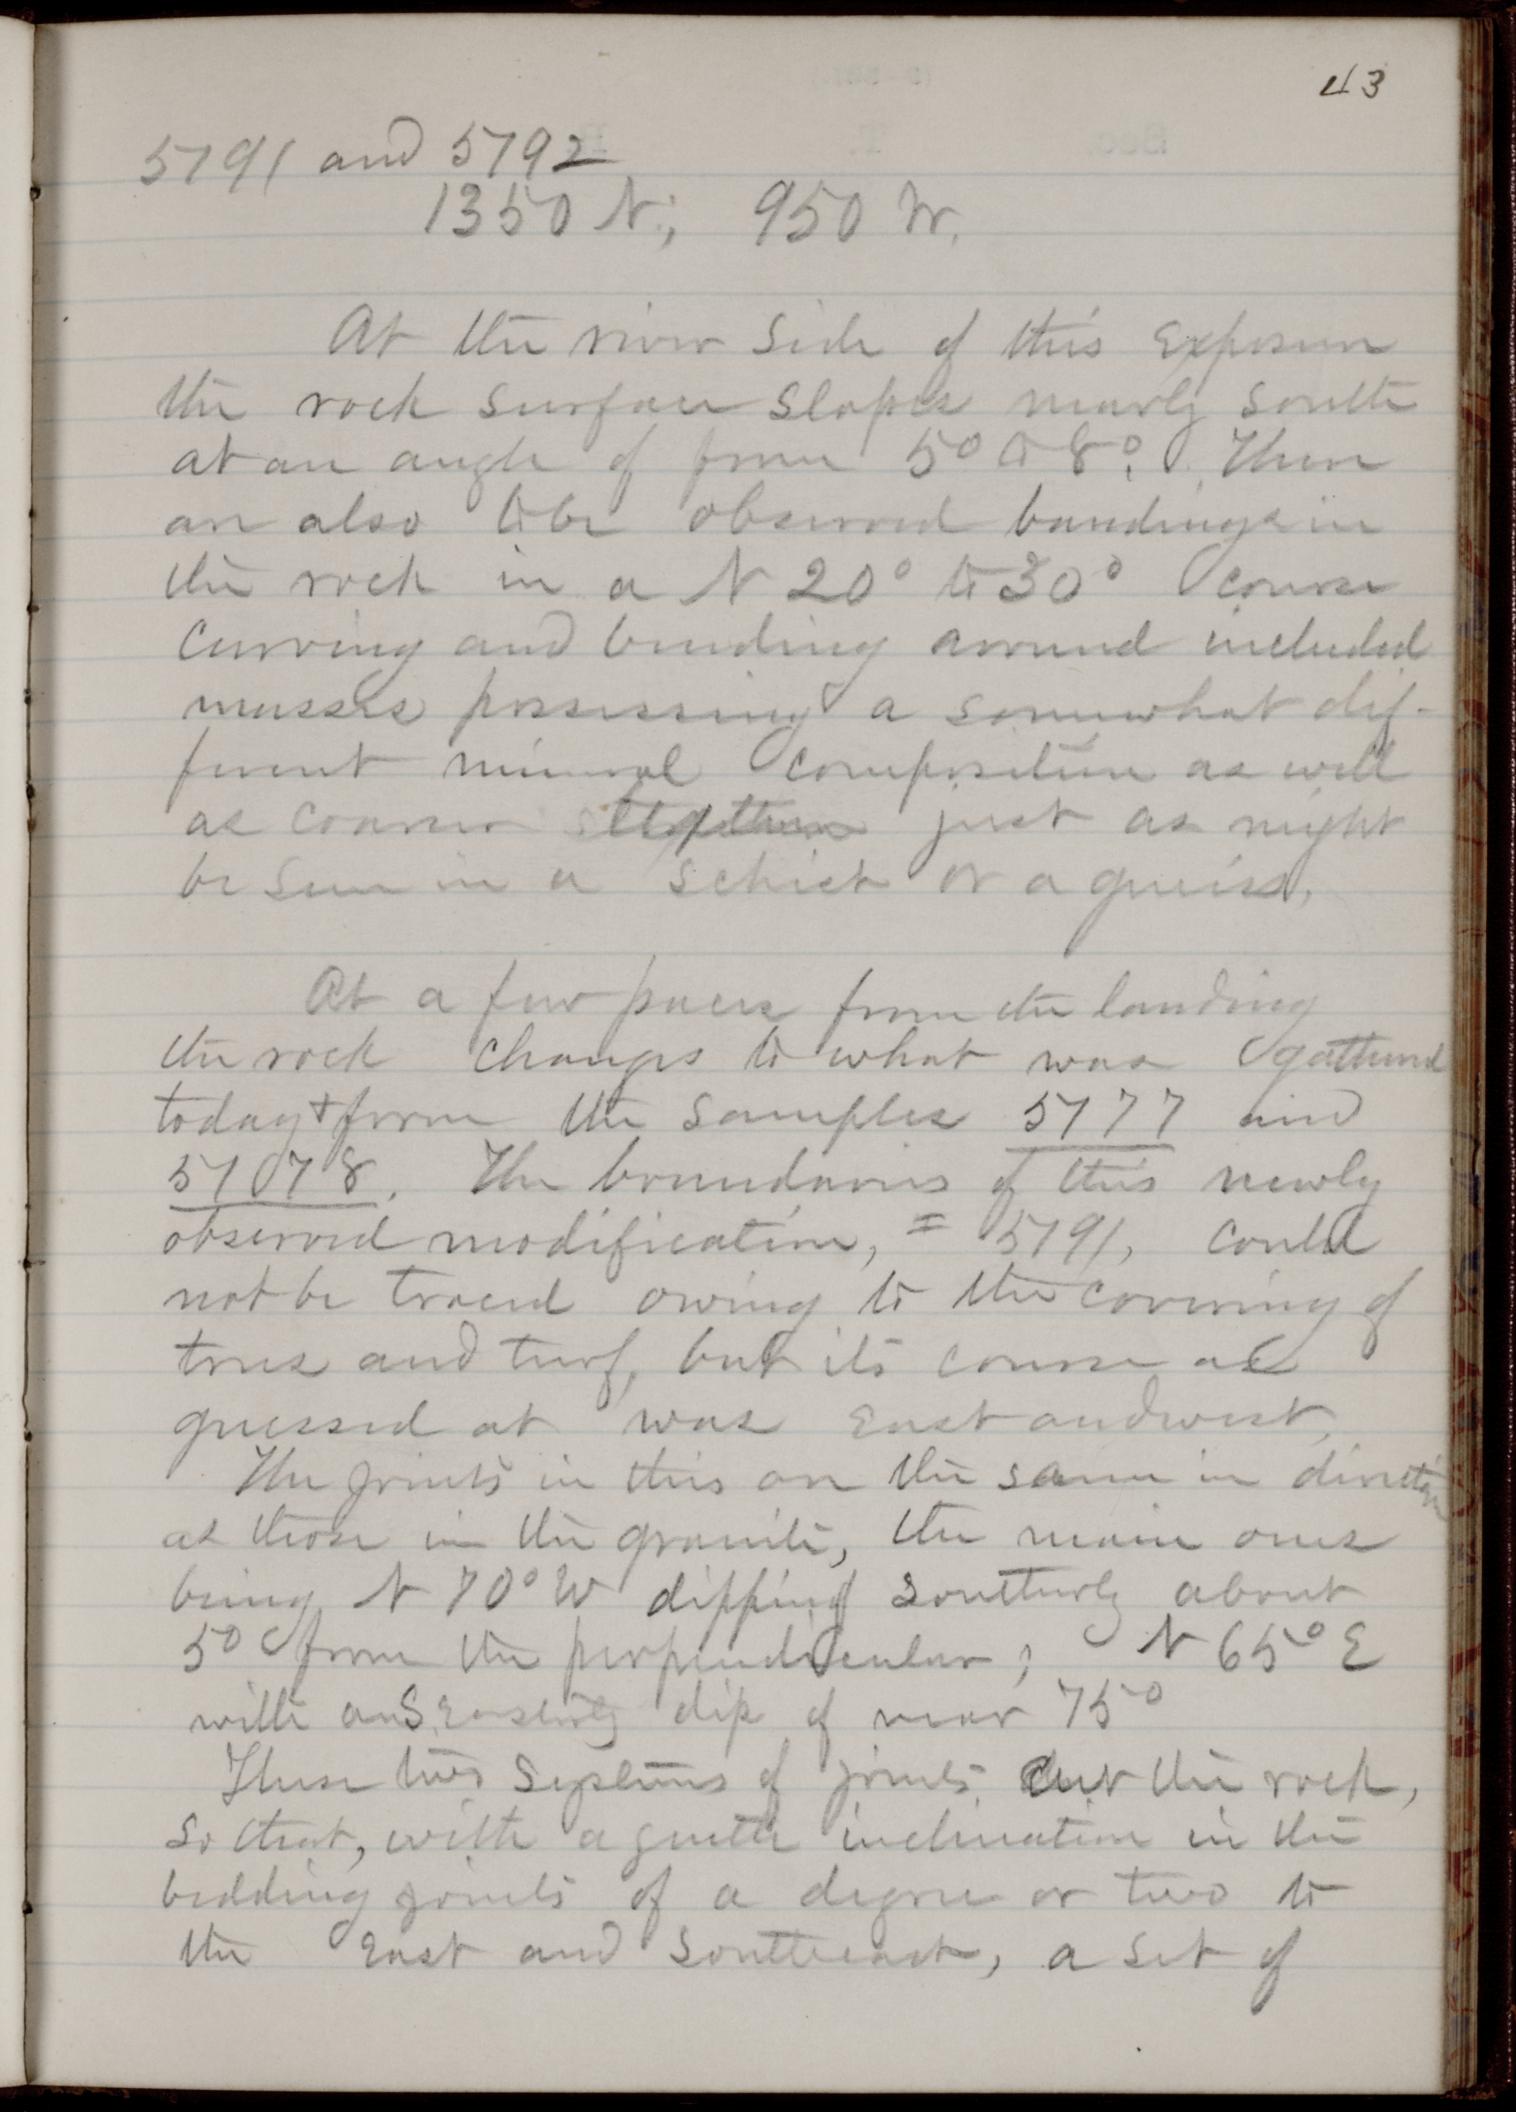 43
5791 and 5792
1350 N.; 950 W.
At the river side of this exposure
the rock surface slopes nearly south
at an angle of from 5° to 8°. There
are also to be observed bandings in
the rock in a N 20° to 30° course
curving and bending around included
masses possessing a somewhat dif-
ferent mineral composition as well
as coarser just as might
be seen in a schist or a gneiss.
At a few paces from the landing
the rock changes to what was gathered
today to form the samples 5777 and
5778. The boundaries of this newly
observed modification, = 5791, could
not be traced owing to the covering of
trees and turf, but its course as
guessed at was east and west.
The joints in this are the same in direction
as those in the granite, the main ones
being N 70° W dipping southerly about
5° from the perpendicular; N 65° E
with an S. Easterly dip of near 75°
These two systems of joints cut the rock,
so that, with a gentle inclination in the
bedding joints of a degree or two to
the east and southeast, a set of